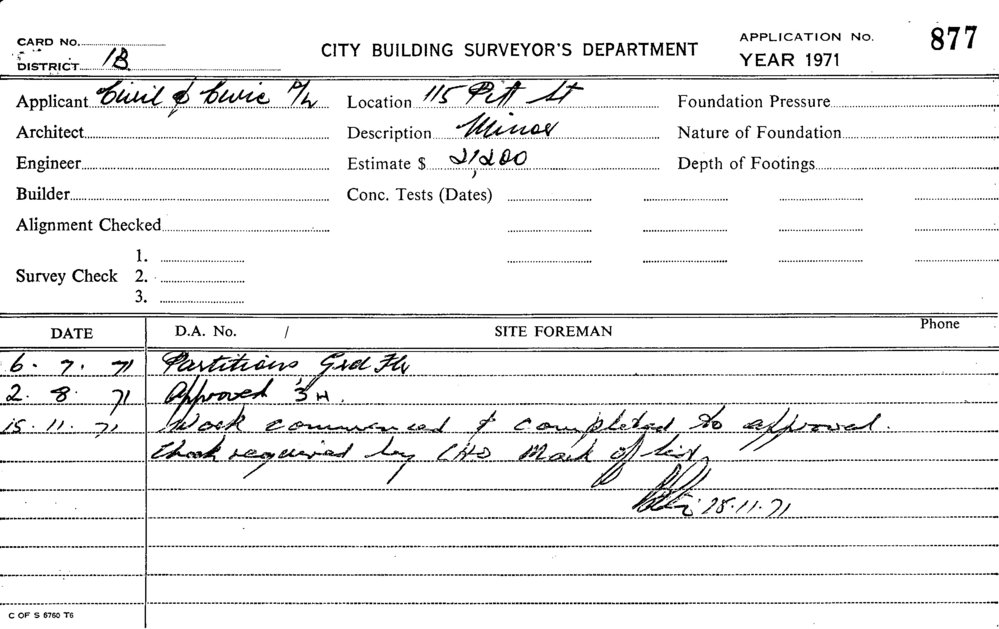 CARD No.
CITY BUILDING SURVEYOR'S DEPARTMENT
APPLICATION No. 877
DISTRICT 1B
YEAR 1971
Applicant Civil & Civic P/L Location 115 Pitt St Foundation Pressure
Architect Description Minor Nature of Foundation
Engineer Estimate $ 21,200 Depth of Footings
Builder Conc. Tests (Dates)
Alignment Checked
1.
Survey Check 2.
3.
DATE D.A. No. / SITE FOREMAN Phone
6. 7. 71 Partitions Grd Flr
2. 8. 71 Approved
15. 11. 71 Work commenced & completed to approval.
required by Mark off
11.71
C OF S 5760 T6